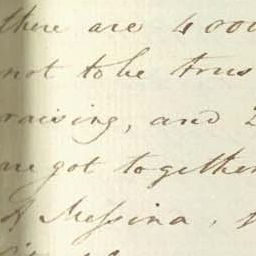 there are 4000
not to be trus
raising, and 2
are got together
At Messina,